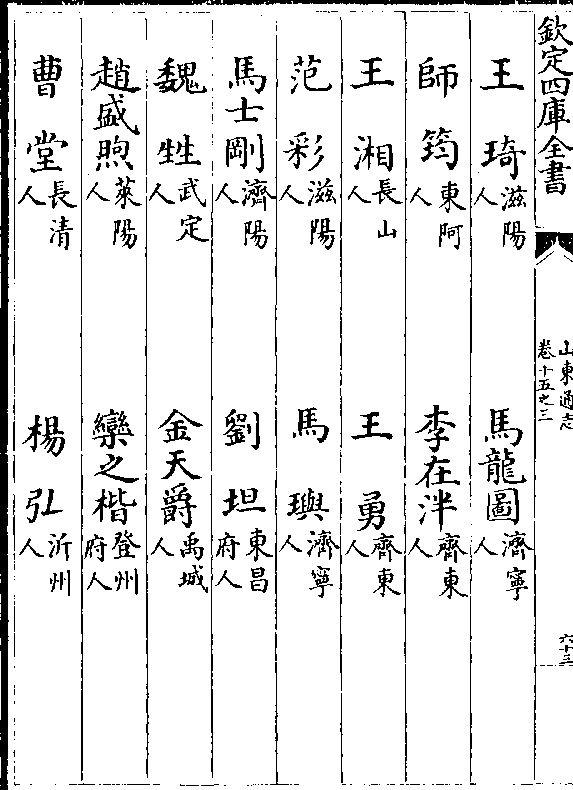 欽定四庫全書
山東通志
卷十五之三
六十三
王琦滋陽人
馬龍圖濟寧人
師筠東阿人
李在泮齊東人
王湘長山人
王勇齊東人
范彩滋陽人
馬璵濟寧人
馬士剛濟陽人
劉坦東昌府人
魏甡武定人
金天爵禹城人
趙盛煦萊陽人
欒之楷登州府人
曹堂長清人
楊弘沂州人